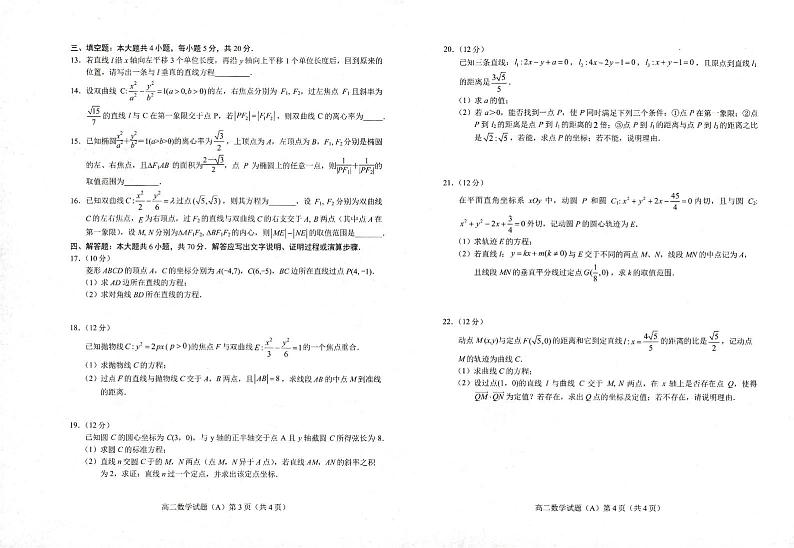 三、填空题：本大题共4小题，每小题5分，共20分．
13．若直线l沿x轴向左平移3个单位长度，再沿y轴向上平移1个单位长度后，回到原来的
位置，请写出一条与l垂直的直线方程________．
14．设双曲线 C: x²/a² − y²/b² =1(a>0,b>0)的左，右焦点分别为 F₁, F₂，过左焦点 F₁且斜率为
√15/7 的直线l与 C在第一象限交于点 P，若|PF₂|=|F₁F₂|，则双曲线 C的离心率为_____．
15．已知椭圆x²/a²+y²/b²=1(a>b>0)的离心率为√3/2，上顶点为 A，左顶点为 B，F₁, F₂分别是椭圆
的左、右焦点，且△F₁AB 的面积为(2−√3)/2，点 P 为椭圆上的任意一点，则1/|PF₁|+1/|PF₂|的
取值范围为________．
16．已知双曲线C: x²/2 − y²/6 =λ过点(√5,√3)，则其方程为_______，设 F₁, F₂分别为双曲线
C的左右焦点，E为右顶点，过F₂的直线与双曲线C的右支交于A, B两点（其中点A在
第一象限），设M, N分别为△AF₁F₂, △BF₁F₂的内心，则|ME|−|NE|的取值范围是_______．
四、解答题：本大题共6小题，共70分．解答应写出文字说明、证明过程或演算步骤．
17．（10分）
菱形ABCD的顶点A，C的坐标分别为A(−4,7)，C(6,−5)，BC边所在直线过点P(4, −1)．
（1）求AD边所在直线的方程；
（2）求对角线BD所在直线的方程．
18．（12分）
已知抛物线C: y²=2px ( p>0 )的焦点F与双曲线E: x²/3 − y²/6 =1的一个焦点重合．
（1）求抛物线C的方程；
（2）过点F的直线与抛物线C交于A，B两点，且|AB|=8，求线段AB的中点M到准线
的距离．
19．（12分）
已知圆C的圆心坐标为C(3，0)，与y轴的正半轴交于点A且y轴截圆C所得弦长为8．
（1）求圆C的标准方程；
（2）直线n交圆C于的M，N两点（点M，N异于A点），若直线AM，AN的斜率之积
为2，求证：直线n过一个定点，并求出该定点坐标．
高二数学试题（A）第3页（共4页）
20．（12分）
已知三条直线：l₁:2x−y+a=0，l₂:4x−2y−1=0，l₃:x+y−1=0，且原点到直线l₁
的距离是3√5/5．
（1）求a的值；
（2）若a>0，能否找到一点P，使P同时满足下列三个条件：①点P在第一象限；②点
P到l₂的距离是点P到l₁的距离的2倍；③点P到l₁的距离与点P到l₃的距离之比
是√2:√5，若能，求点P的坐标；若不能，说明理由．
21．（12分）
在平面直角坐标系 xOy 中，动圆 P 和圆 C₁: x²+y²+2x−45/4=0内切，且与圆C₂:
x²+y²−2x+3/4=0外切，记动圆P的圆心轨迹为E．
（1）求轨迹E的方程；
（2）若直线l：y=kx+m(k≠0)与E交于不同的两点M、N，线段MN的中点记为A，
且线段MN的垂直平分线过定点G(1/8,0)，求k的取值范围．
22．（12分）
动点M(x,y)与定点F(√5,0)的距离和它到定直线l:x=4√5/5的距离的比是√5/2，记动点
M的轨迹为曲线C．
（1）求曲线C的方程；
（2）设过点(1，0)的直线l与曲线C交于M, N两点，在x轴上是否存在点Q，使得
QM·QN为定值？若存在，求出Q点的坐标及定值；若不存在，请说明理由．
高二数学试题（A）第4页（共4页）